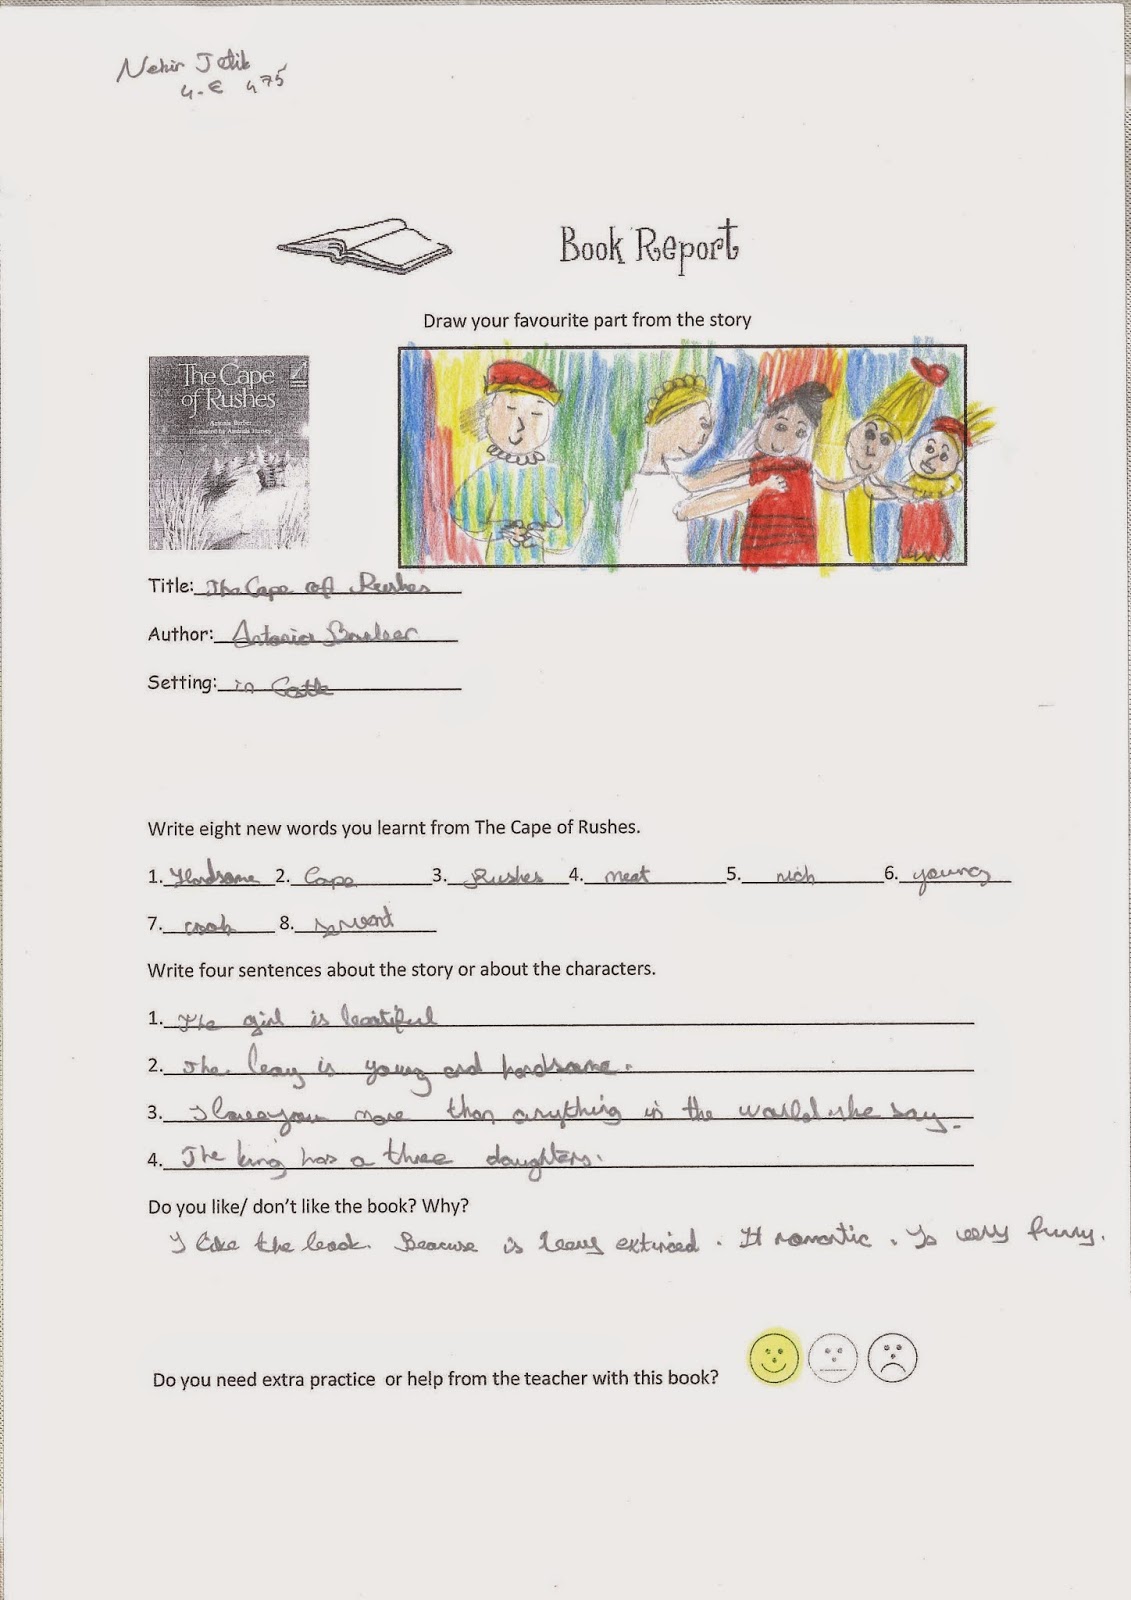 Nehir
4-E 475
Book Report
Draw your favourite part from the story
The Cape
of Rushes
Antonia Barber
Title: The Cape of Rushes
Author: Antonia Barber
Setting: in Castle
Write eight new words you learnt from The Cape of Rushes.
1. Handsome 2. Cape 3. Rushes 4. meat 5. rich 6. young
7. cook 8. servant
Write four sentences about the story or about the characters.
1. The girl is beautiful
2. The boy is young and handsome.
3. I love you more than anything in the world she say.
4. The king has a three daughters.
Do you like/ don't like the book? Why?
I like the book. Because is very extinced. It romantic. Is very funny.
Do you need extra practice or help from the teacher with this book?